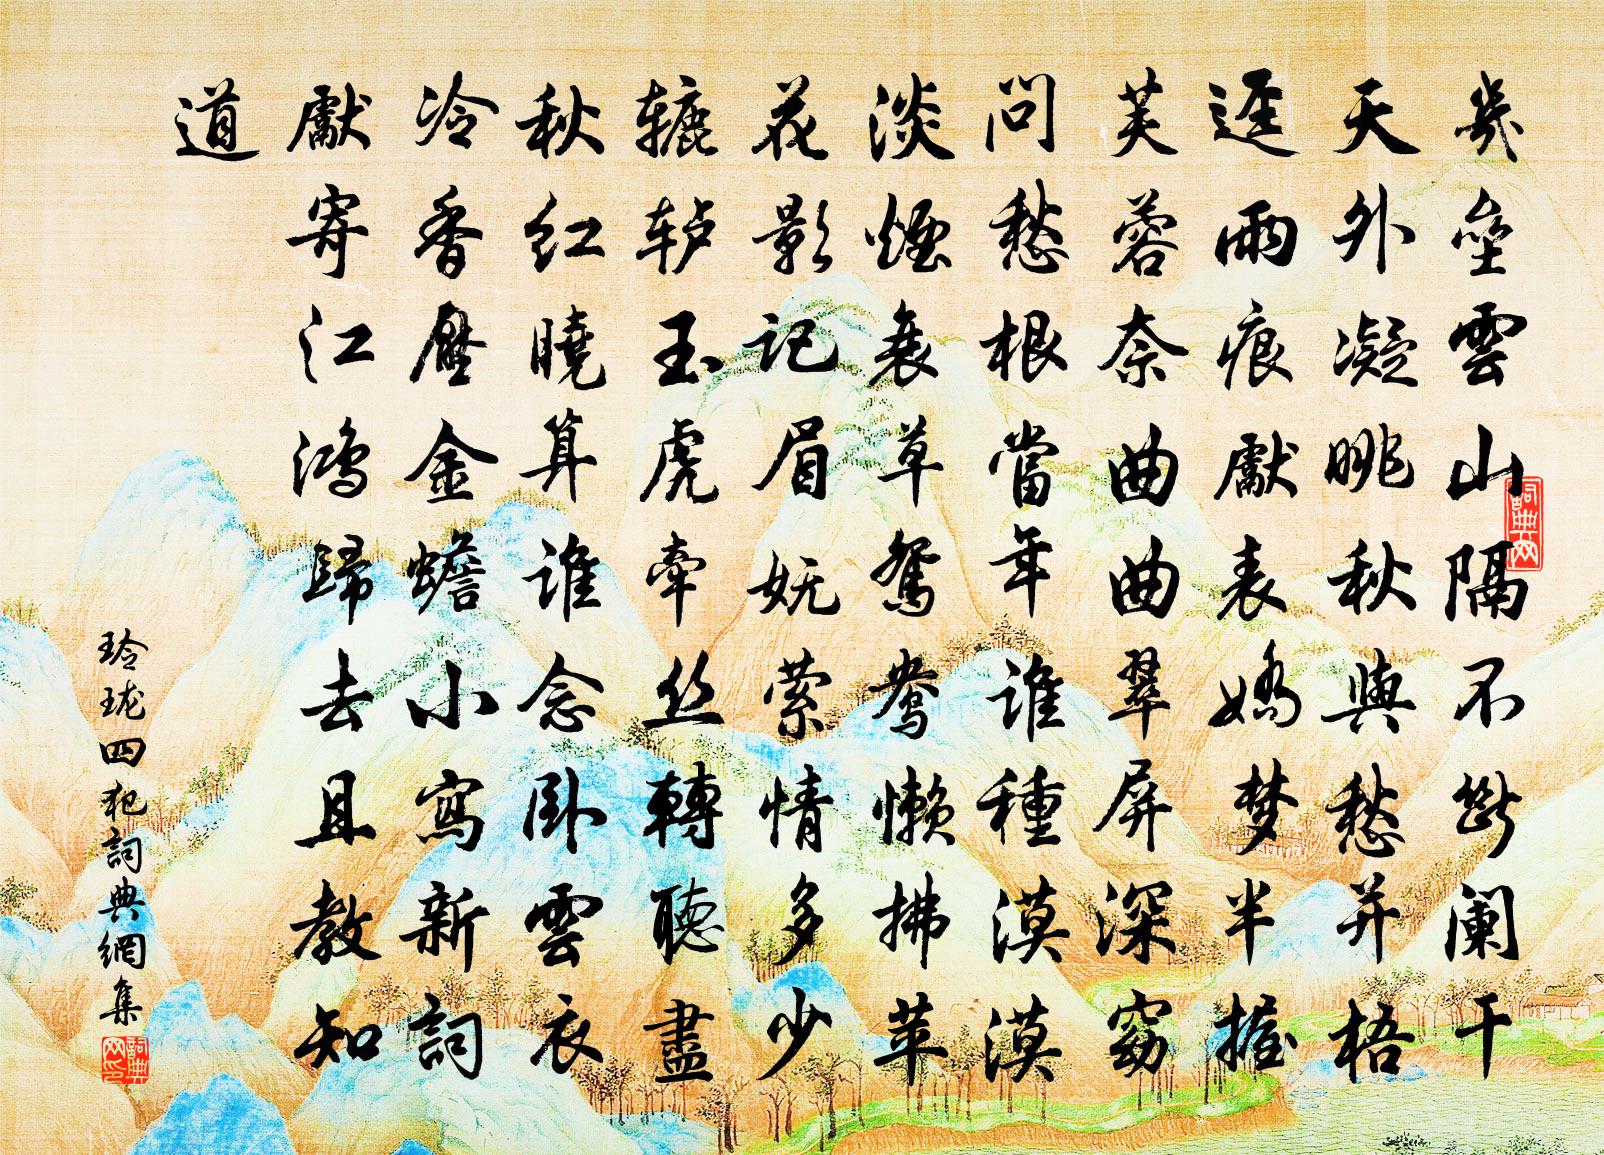 幾壘雲山隔不斷阑干
天外凝眺秋與愁并梧
逕雨痕獻表嬌梦半握
芙蓉奈曲曲翠屏深窈
問愁根當年誰種漠漠
淡煙衰草鸳鸯懶拂苹
花影記眉妩萦情多少
辘轳玉虎牵丝轉聽盡
秋红曉算誰念卧雲衣
冷香壓金蟾小寫新詞
獻寄江鸿歸去且教知
道
玲珑四犯詞典網集
詞典网
詞典网印